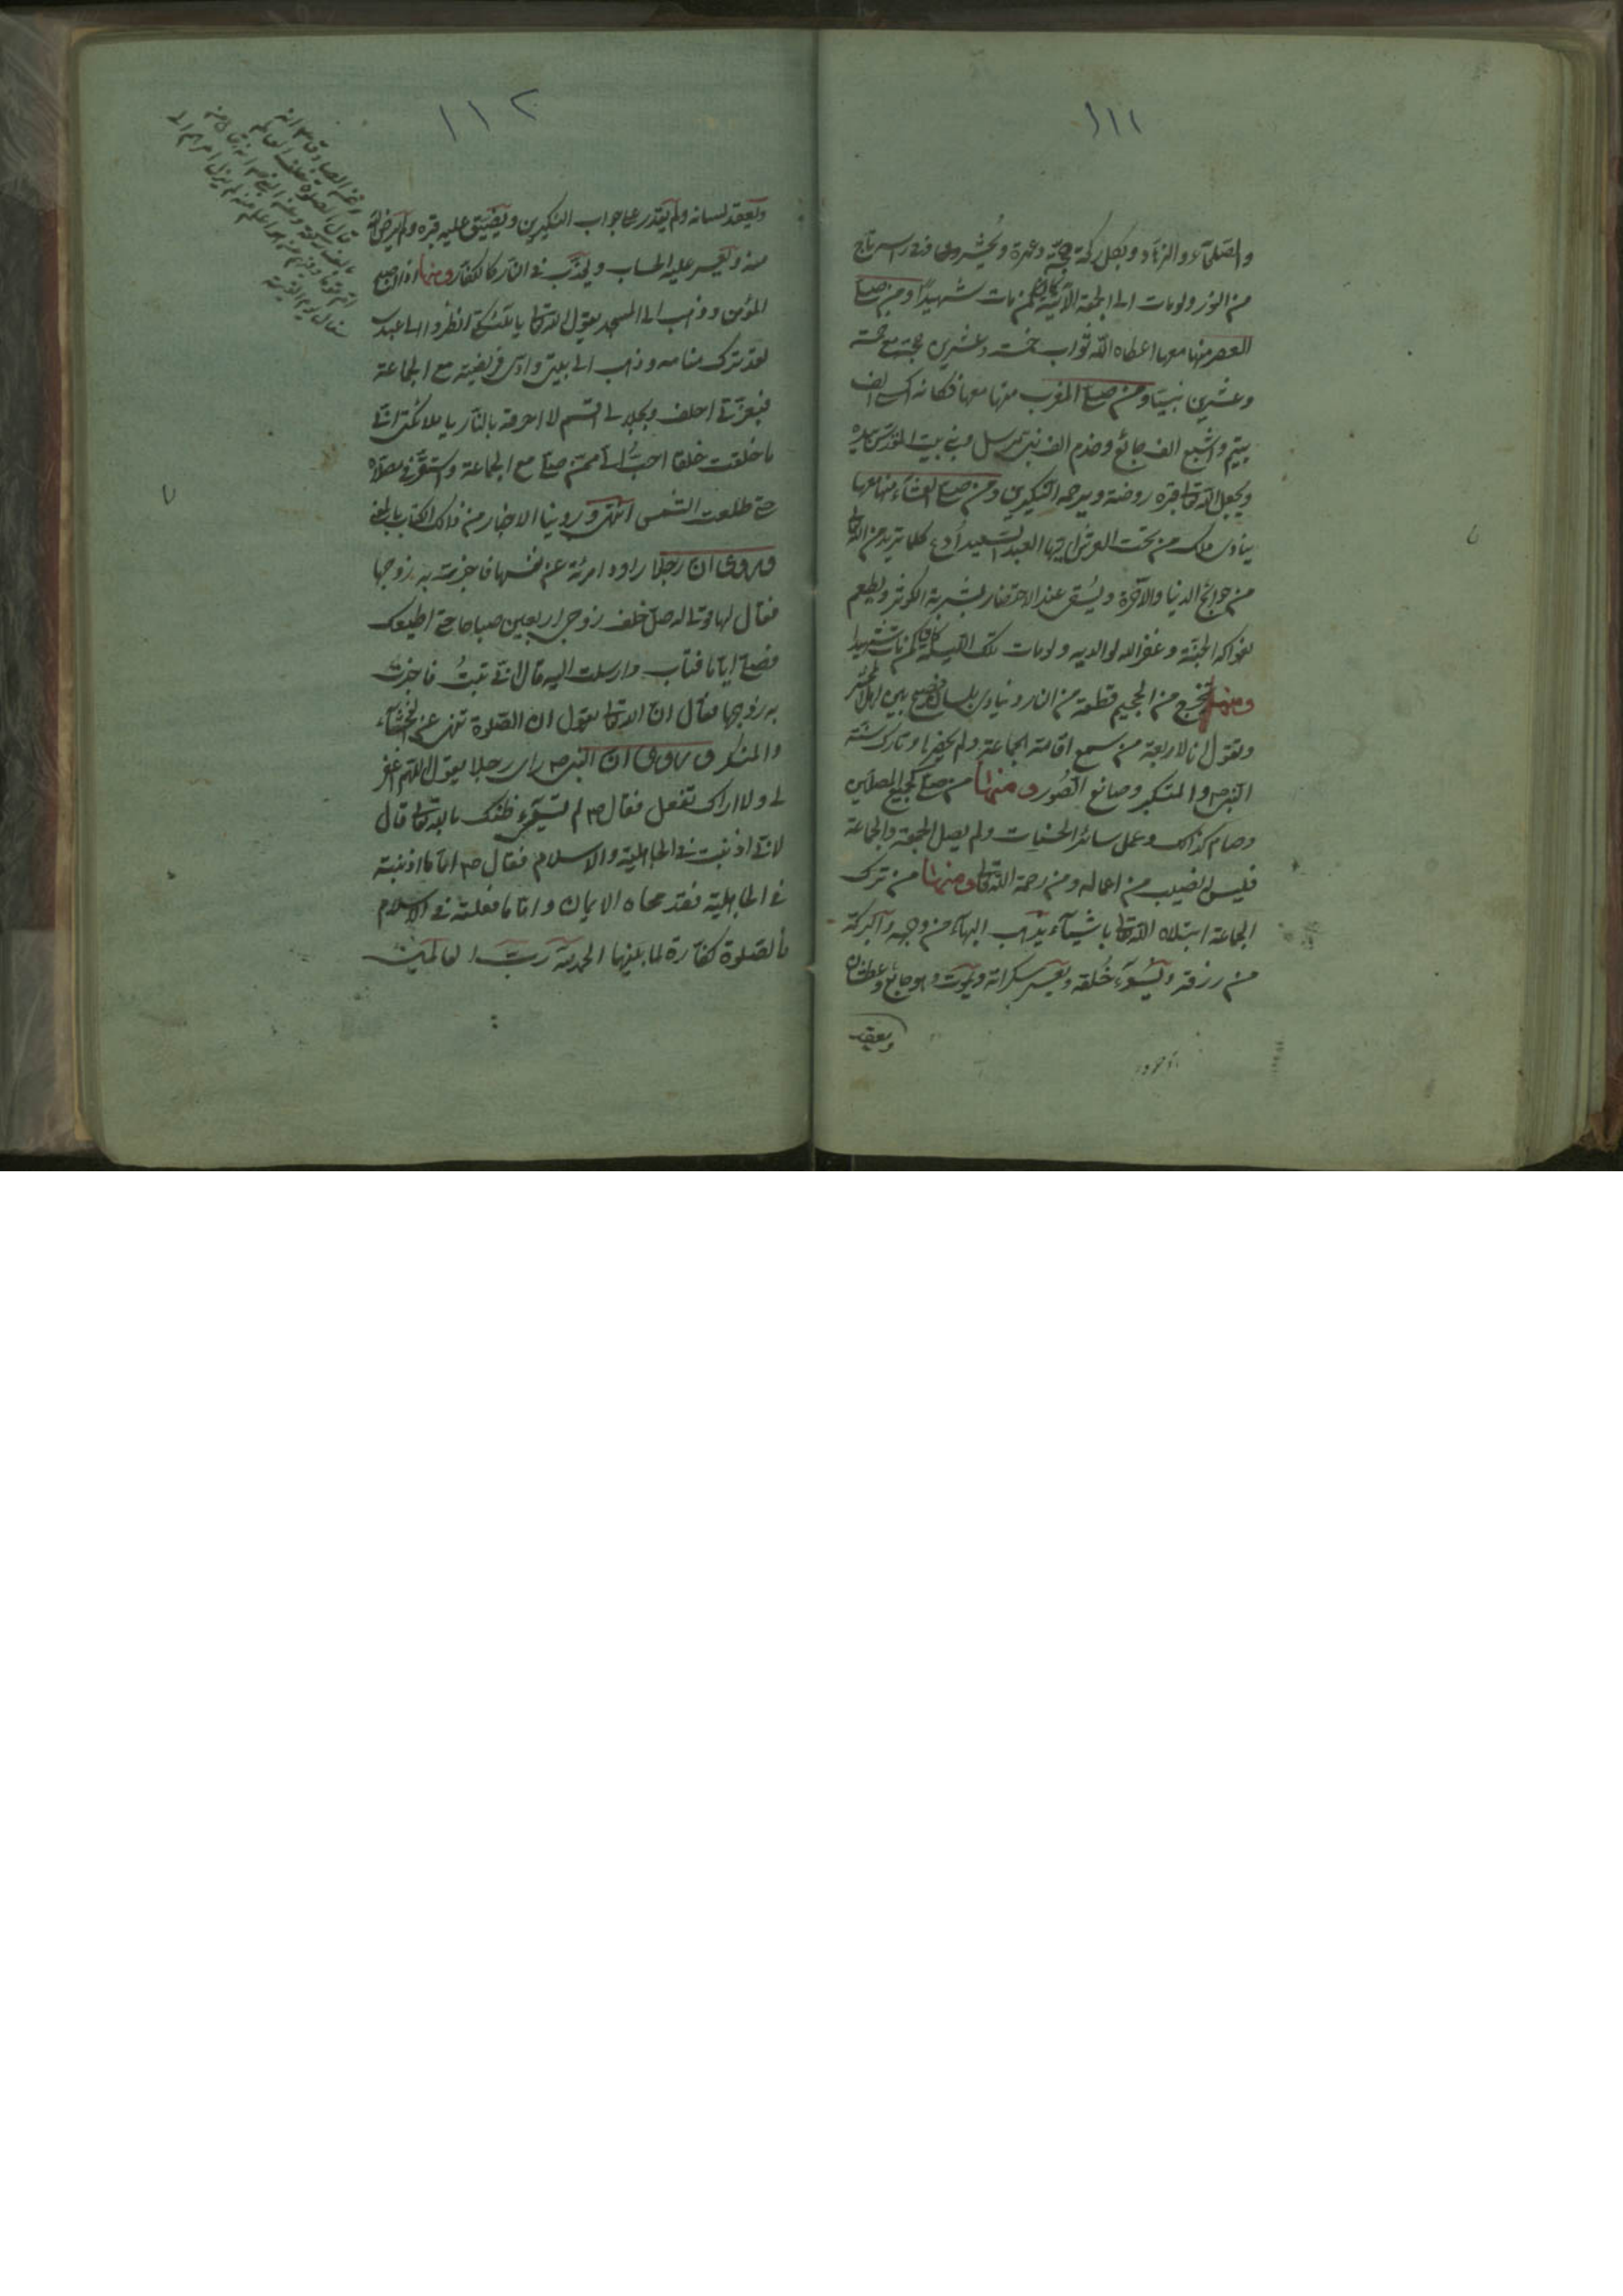 ١١١
والصلحآء والزهاد وبكل ركعة حجة وعمرة ويحشر وعلى راسه تاج
من النور ولو مات الى الجمعة الآتية كان كمن مات شهيدا ومن صلى
العصر منها معها اعطاه الله ثواب خمسة وعشرين حجة مع خمسة
وعشرين نبيا ومن صلى المغرب منها معها فكانه اكسى الف
يتيم واشبع الف جائع وخدم الف نبى مرسل وبنى بيت المقدس بيده
ويجعل الله تعالى قبره روضة ويرحمه النكيرين ومن صلى العشاء منها معها
ينادى ملك من تحت العرش ايها العبد السعيد ادع كلما تريد من الله تعالى
من حوائج الدنيا والآخرة ويسقى عند الاحتضار بشربة الكوثر ويطعم
بفواكه الجنة وغفر الله لوالديه ولو مات تلك الليلة كان كمن مات شهيدا
ومنها يخرج من الجحيم قطعة من النار وينادى بلسان فصيح بين اهل المحشر
وتقول انا لاربعة من سمع اقامة الجماعة ولم يحضرها وتارك سنة
النبى ص والمتكبر وصانع الصور ومنها من صلى كجميع المصلين
وصام كذالك وعمل سائر الحسنات ولم يصل الجمعة والجماعة
فليس له نصيب من اعماله ومن رحمة الله تعالى ومنها من ترك
الجماعة ابتلاه الله تعالى باشيآء يذهب البهآء من وجهه والبركة
من رزقه ويسوء خلقه ويعسر سكراته ويموت وهو جائع وعطشان
ويعقد
١١٢
ويعقد لسانه ولم يقدر على جواب النكيرين ويضيق عليه قبره ولم يرض الله
منه ويعسر عليه الحساب ويعذب فى النار كالكفار ومنها اذا اصبح
المؤمن وذهب الى المسجد يقول الله تعالى يا ملائكتى انظروا الى عبدى
لقد ترك منامه وذهب الى بيتى وادى فريضته مع الجماعة
فبعزتى احلف وبجلالى اقسم لا احرقه بالنار يا ملائكتى انى
ما خلقت خلقا احب الى ممن صلى مع الجماعة واستقر فى مصلاه
حتى طلعت الشمس انتهى وروينا الاخبار من ذلك الكتاب بالمعنى
وروى ان رجلا راود امرئة عن نفسها فاخبرت به زوجها
فقال لها قولى له صل خلف زوجى اربعين صباحا حتى اطيعك
فصلى اياما فتاب وارسلت اليه قال انى تبت فاخبرت
به زوجها فقال ان الله تعالى يقول ان الصلوة تنهى عن الفحشآء
والمنكر وروى ان النبى ص راى رجلا يقول اللهم اغفر
لى ولا اراك تفعل فقال ص لم تسيئ ظنك بالله تعالى قال
لانى اذنبت فى الجاهلية والاسلام فقال ص اما ما اذنبته
فى الجاهلية فقد محاه الايمان واما ما فعلته فى الاسلام
فالصلوة كفارة لما بينها الحمد لله رب العالمين
وعن الصادق ع انه
قال الصلوة خلف العالم